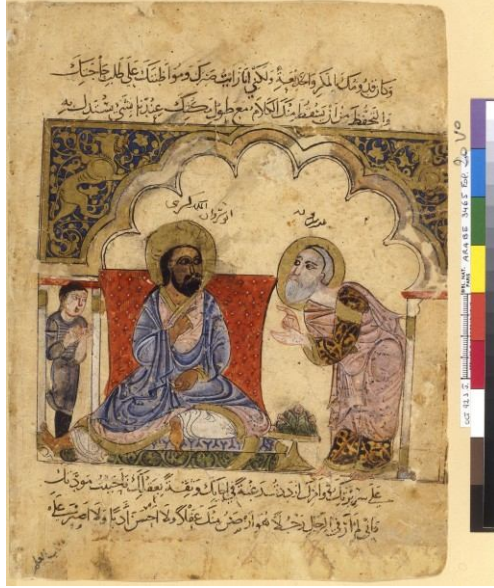 وكان قدومك المكر والخديعة ولكني لما رايت صبرك ومواظبتك على طلب حاجتك
والتحفظ من ان تسقط منك الكلام مع طول مكثك عندنا بشي يستدل به
انوشروان
على سريرتك ازددت رغبة في اخايك وثقة بعقلك فاحببت مودتك
فاني لم ار في الرجال رجلا هو ارصن منك عقلا ولا احسن ادبا ولا اصبر على
ARABE 3465 Fol. 20 Vo